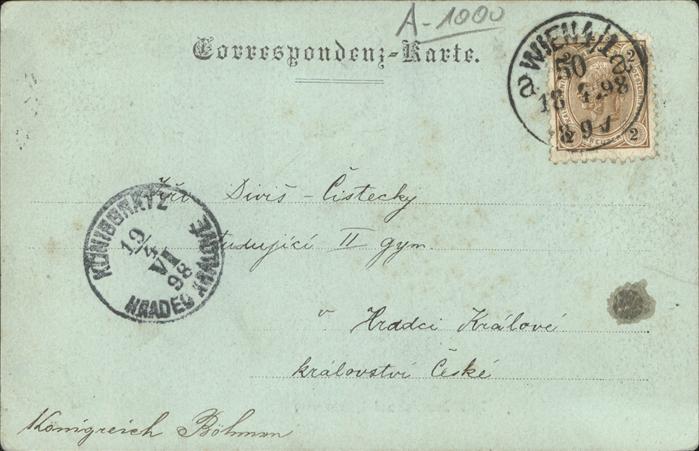 A-1000
Correspondenz-Karte.
WIEN 4/1
50
18 4 98
2
2
Jiří Diviš-Čistecky
studující II gym.
v Hradci Králové
království České
KÖNIGGRÄTZ
19/4
VI
98
HRADEC KRÁLOVÉ
Königreich Böhmen